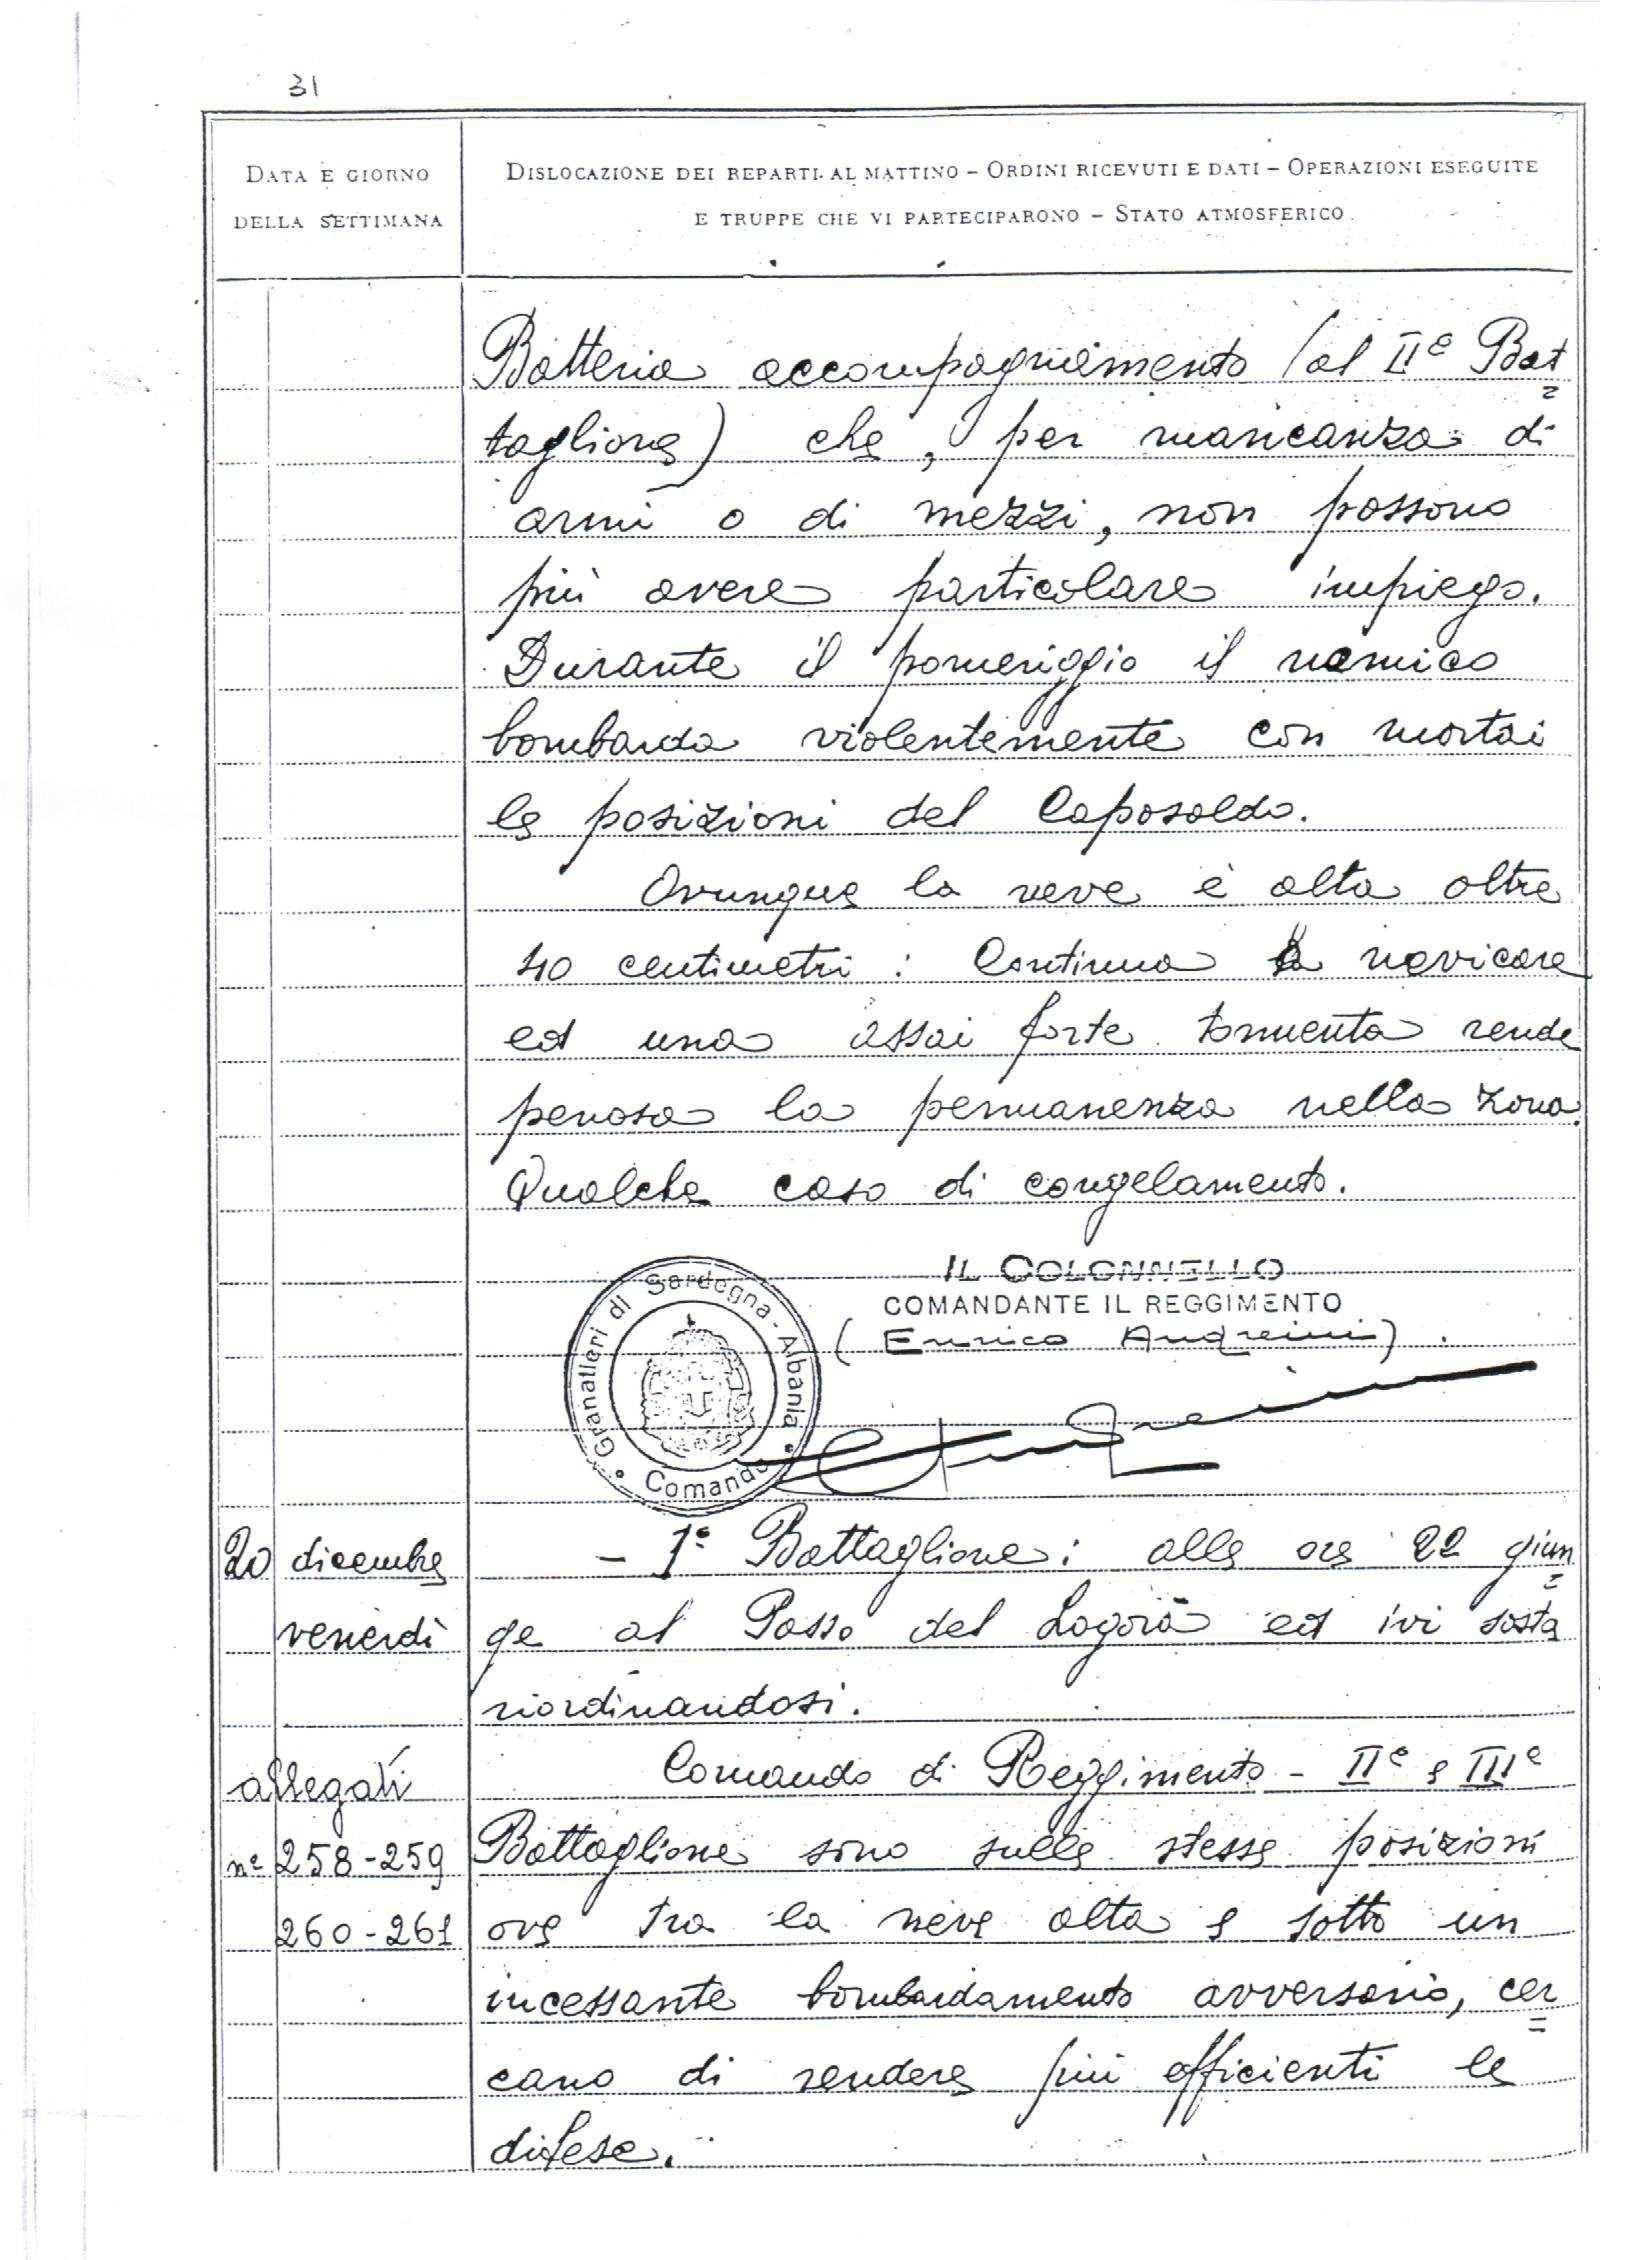 31
DATA E GIORNO
DELLA SETTIMANA
DISLOCAZIONE DEI REPARTI AL MATTINO – ORDINI RICEVUTI E DATI – OPERAZIONI ESEGUITE
E TRUPPE CHE VI PARTECIPARONO – STATO ATMOSFERICO.
Batteria accompagnamento (al IIº Bat=
taglione) che, per mancanza di
armi o di mezzi, non possono
più avere particolare impiego.
Durante il pomeriggio il nemico
bombarda violentemente con mortai
le posizioni del Caposaldo.
Ovunque la neve è alta oltre
40 centimetri: Continua a nevicare
ed una assai forte tormenta rende
penosa la permanenza nella zona.
Qualche caso di congelamento.
IL COLONNELLO
COMANDANTE IL REGGIMENTO
(Enrico Andreini).
Granatieri di Sardegna - Albania • Comando •
20 dicembre
venerdì
– 1º Battaglione: alle ore 22 giun=
ge al Passo del Logorà ed ivi sosta
riordinandosi.
allegati
nº 258-259
260-261
Comando di Reggimento – IIº e IIIº
Battaglione sono sulle stesse posizioni
ove tra la neve alta e sotto un
incessante bombardamento avversario, cer=
cano di rendere più efficienti le
difese.